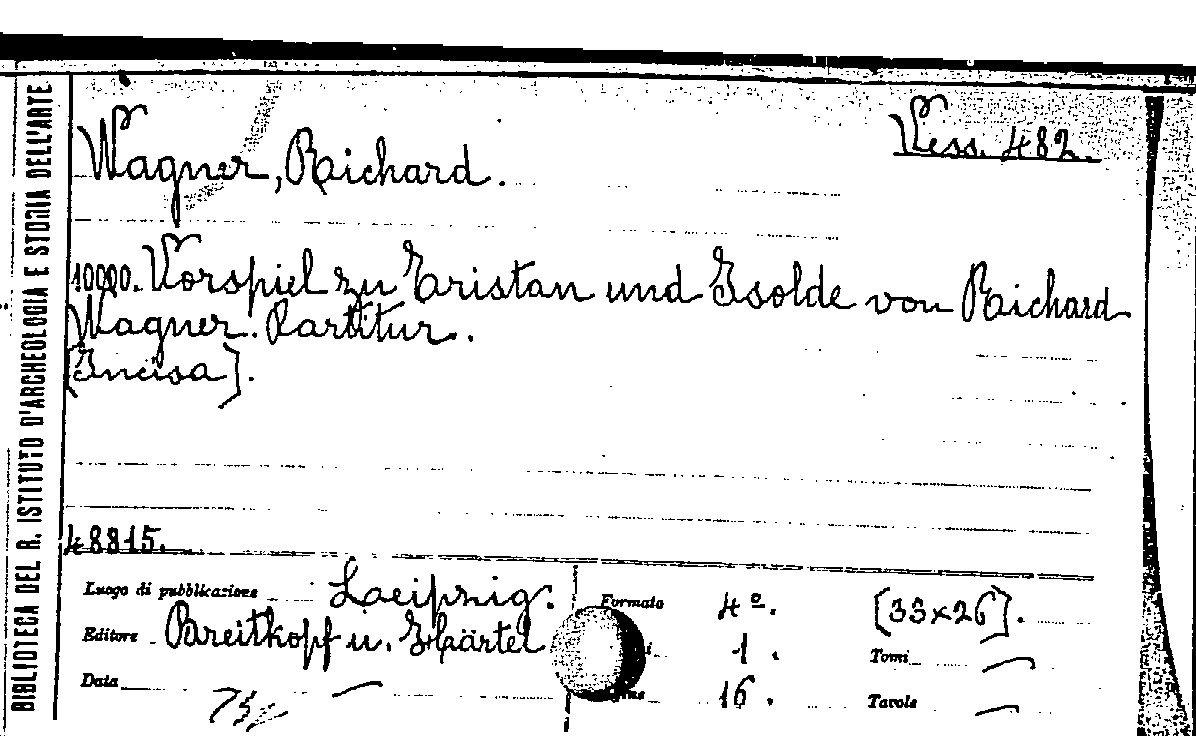 BIBLIOTECA DEL R. ISTITUTO D'ARCHEOLOGIA E STORIA DELL'ARTE
Wagner, Richard.
Vess. 482.
10000. Vorspiel zu Tristan und Isolde von Richard
Wagner. Partitur.
[Incisa].
48815.
Luogo di pubblicazione Leipzig.
Formato 4º. [33x26].
Editore Breitkopf u. Härtel
1. Tomi —
Data —
16. Tavole —